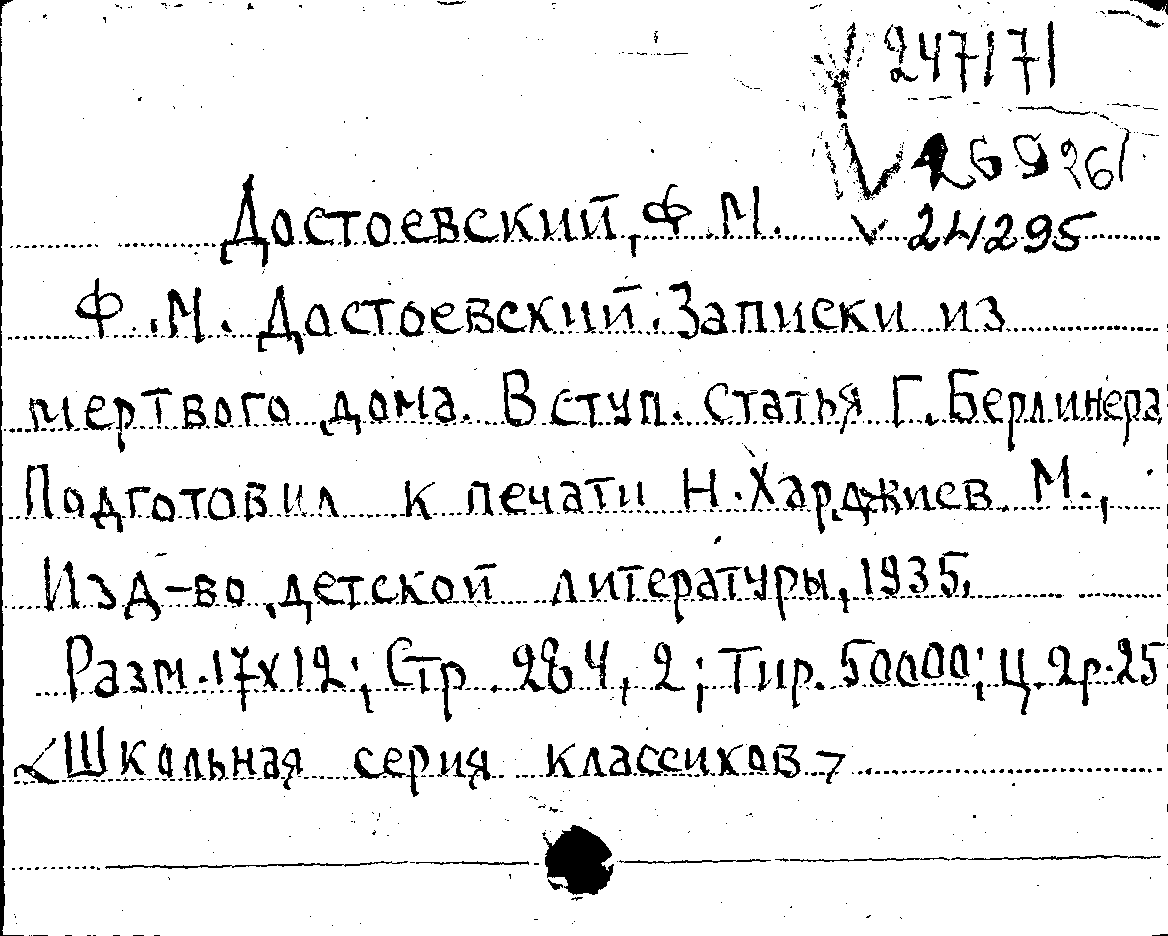 V 247171
V 26926/
Достоевский, Ф.М. v 24295
Ф.М. Достоевский. Записки из
мертвого дома. Вступ. статья Г. Берлинера
Подготовил к печати Н. Харджиев. М.,
Изд-во детской литературы, 1935.
Разм. 17х12; Стр. 284, 2; Тир. 50000; Ц. 2р. 25
<Школьная серия классиков>